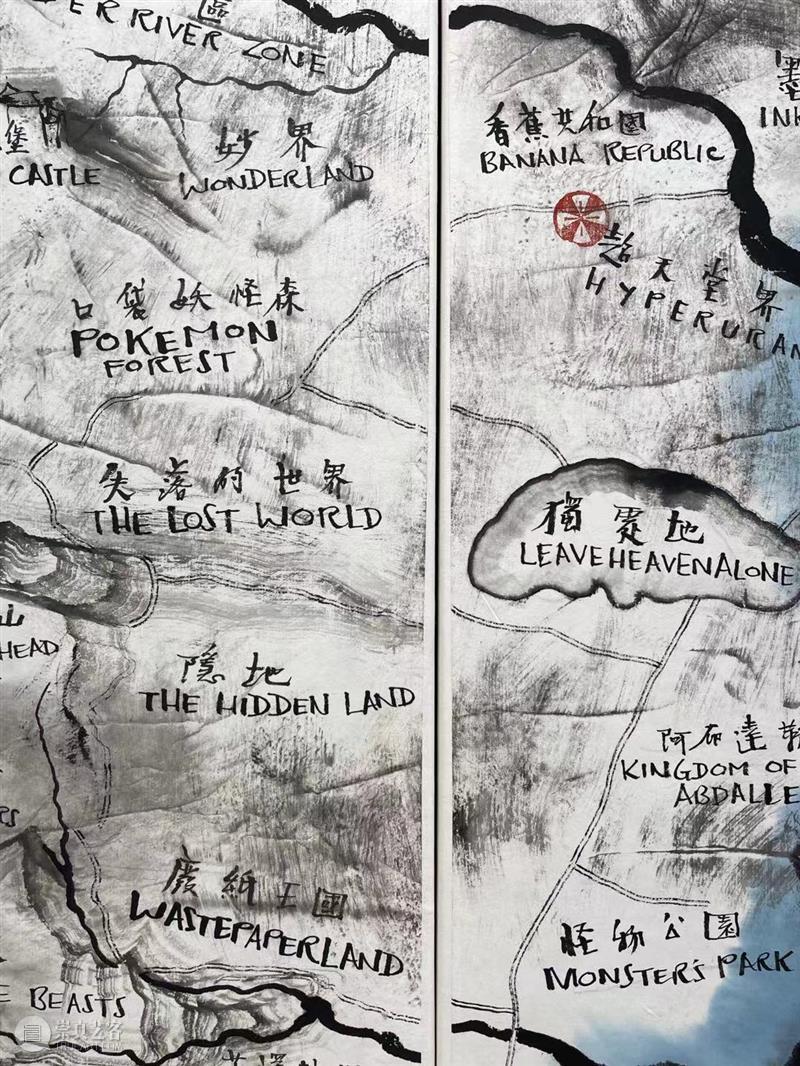 區
ER RIVER ZONE
堡
CASTLE
妙界
WONDERLAND
口袋妖怪森
POKEMON
FOREST
失落的世界
THE LOST WORLD
山
HEAD
隱地
THE HIDDEN LAND
廢紙王國
WASTEPAPERLAND
BEASTS
墨
INK
香蕉共和國
BANANA REPUBLIC
超天堂界
HYPERURAN
獨霞地
LEAVEHEAVENALONE
阿布達勒
KINGDOM OF
ABDALLE
怪物公園
MONSTER'S PARK
崇真艺客